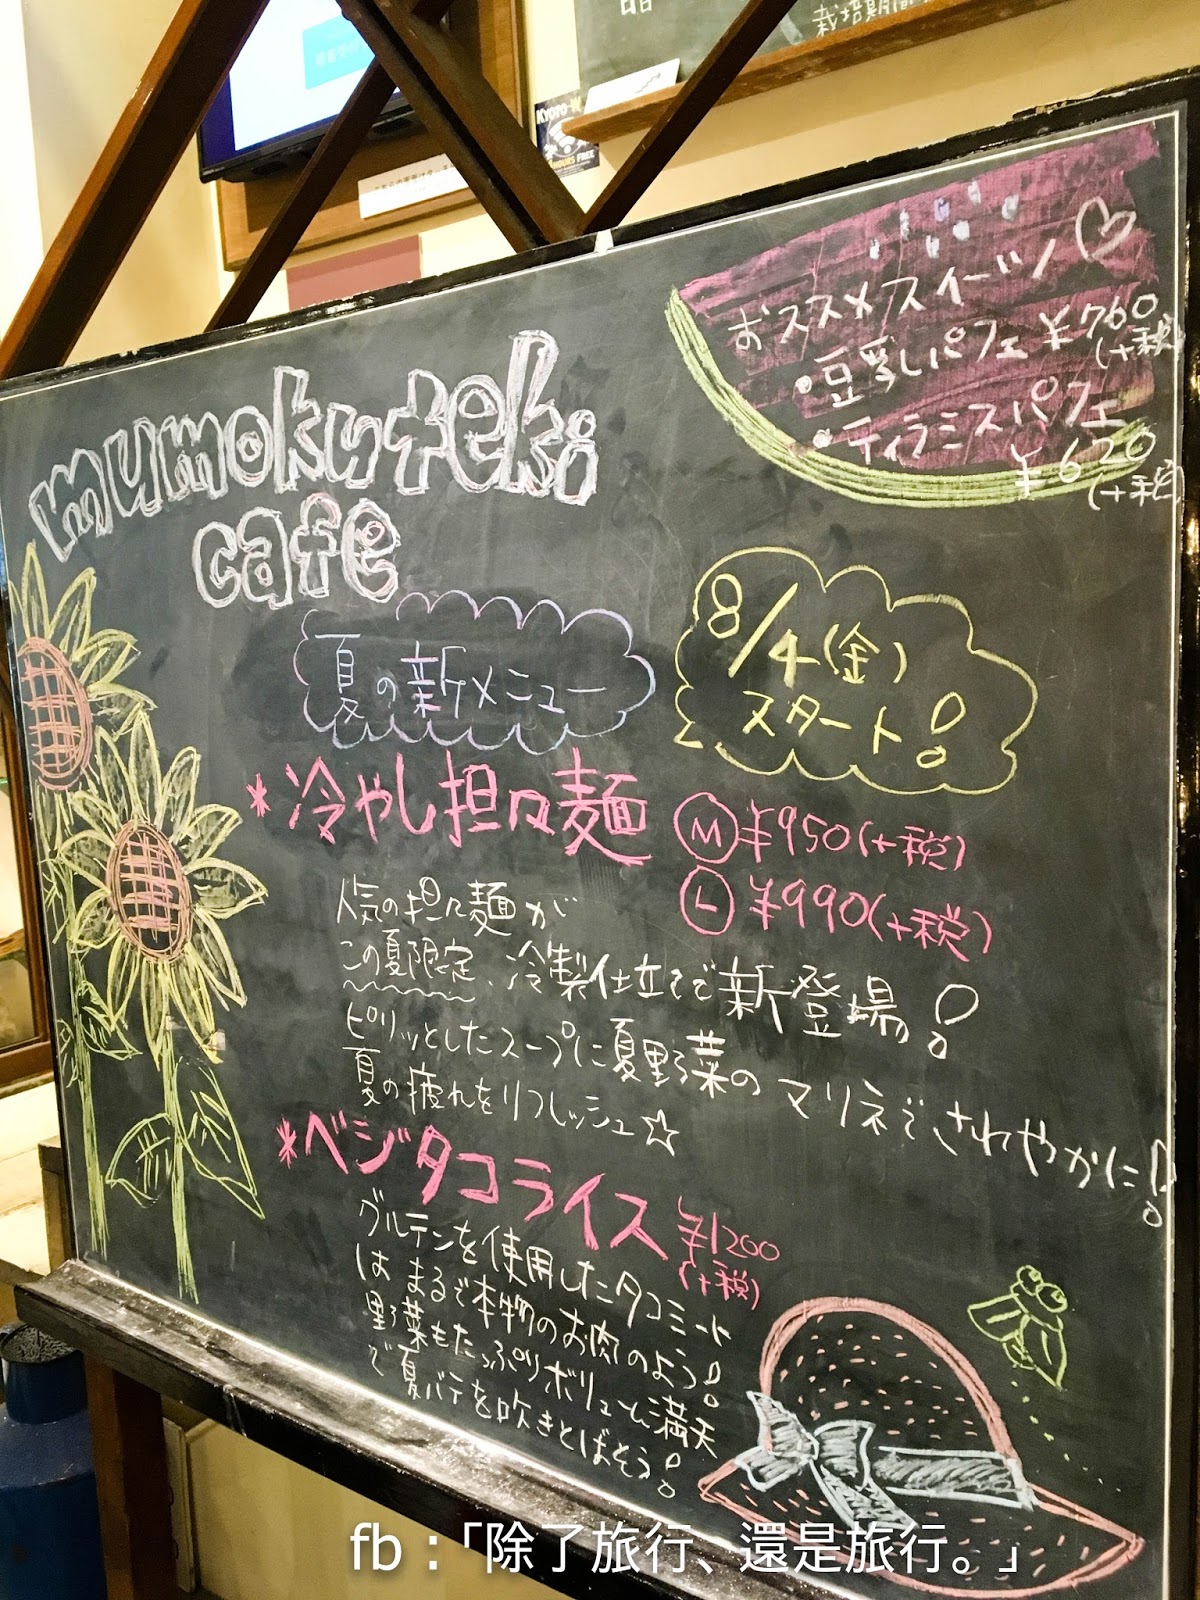 栽培期間
KYOTO Wi-Fi
FREE
mumokuteki
cafe
おススメスイーツ♡
・豆乳パフェ ¥760
(+税)
・ティラミスパフェ
¥620
(+税)
夏の新メニュー
8/4(金)
スタート!
*冷やし担々麺
Ⓜ¥950(+税)
Ⓛ¥990(+税)
人気の担々麺が
この夏限定、冷製仕立てで新登場!
ピリッとしたスープに夏野菜のマリネでさわやかに!
夏の疲れをリフレッシュ☆
*ベジタコライス ¥1200
(+税)
グルテンを使用したタコミート
はまるで本物のお肉のよう!
野菜もたっぷりボリューム満天
で夏バテを吹きとばそう!
fb:「除了旅行、還是旅行。」